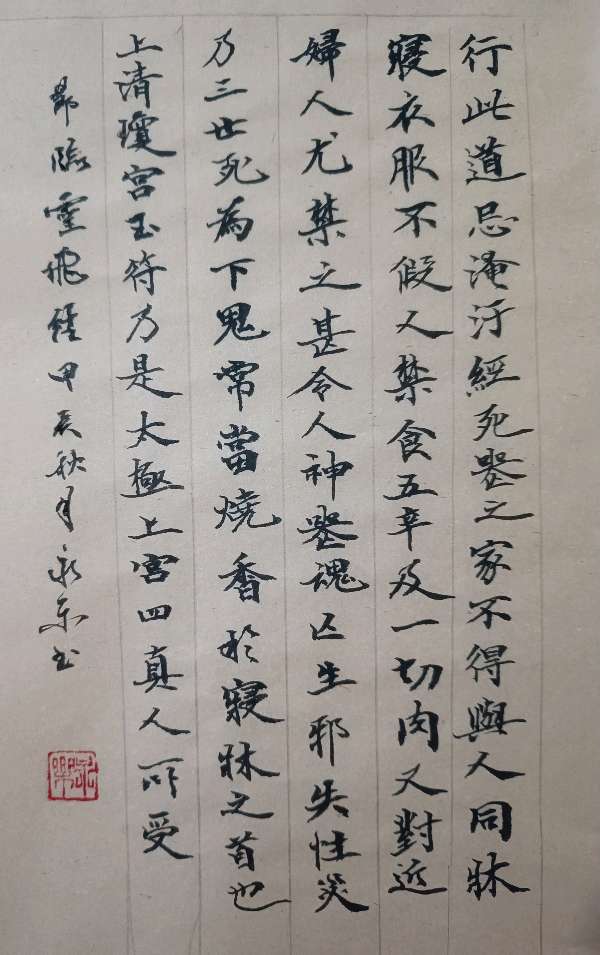 行此道忌淹汙經死喪之家不得與人同牀
寢衣服不假人禁食五辛及一切肉又對近
婦人尤禁之甚令人神喪魂亡生邪失性災
及三世死為下鬼常當燒香於寢牀之首也
上清瓊宮玉符乃是太極上宮四真人所受
節臨靈飛經甲辰秋月永樂書